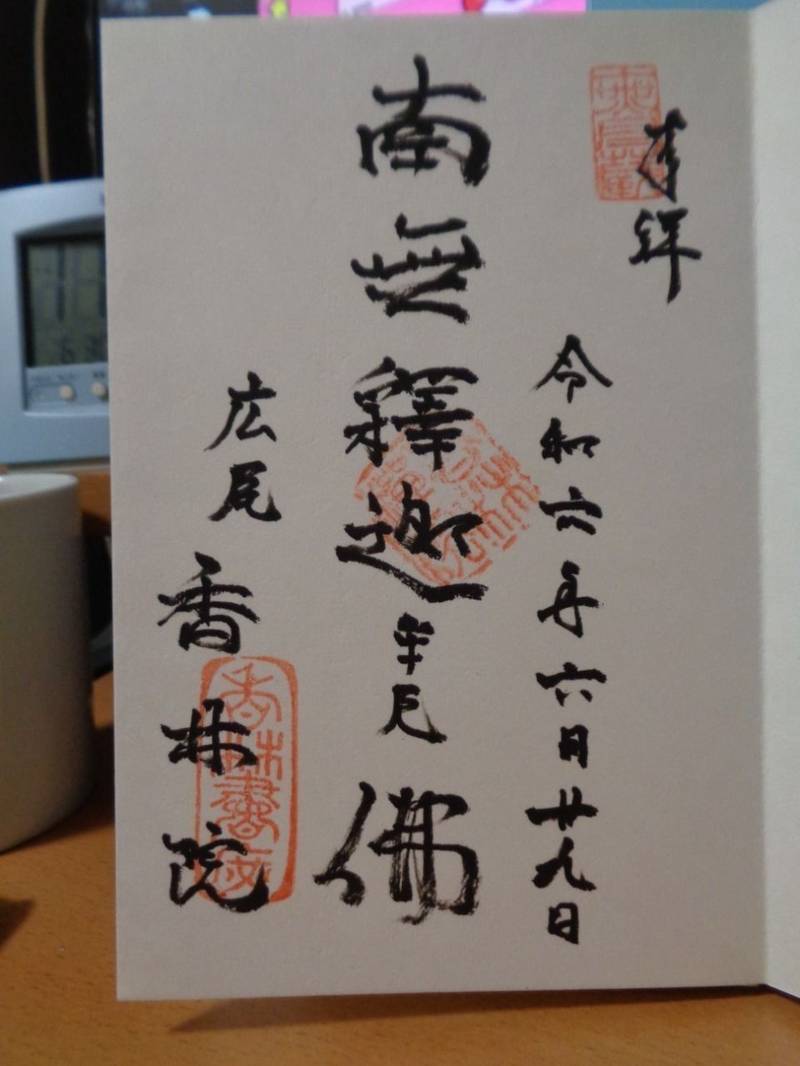 奉拝
令和六年六月廿九日
南無釋迦牟尼佛
広尾
香林院